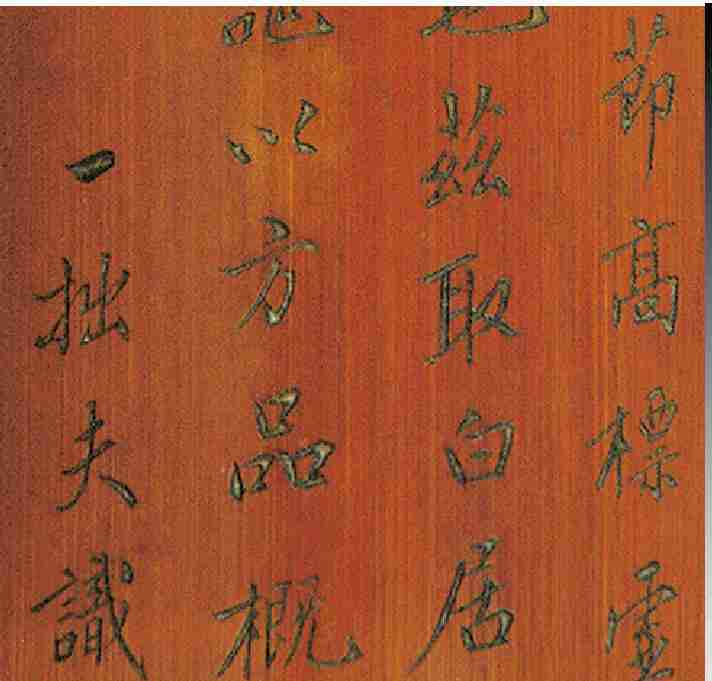 節高標雲
茲取白居
以方品概
一拙夫識